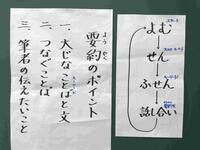 要約のポイント
ようやく
一、大じなことばと文
二、つなぐことば
三、筆者の伝えたいこと
よむ
↓
せん
↓
ふせん
↓
話し合い